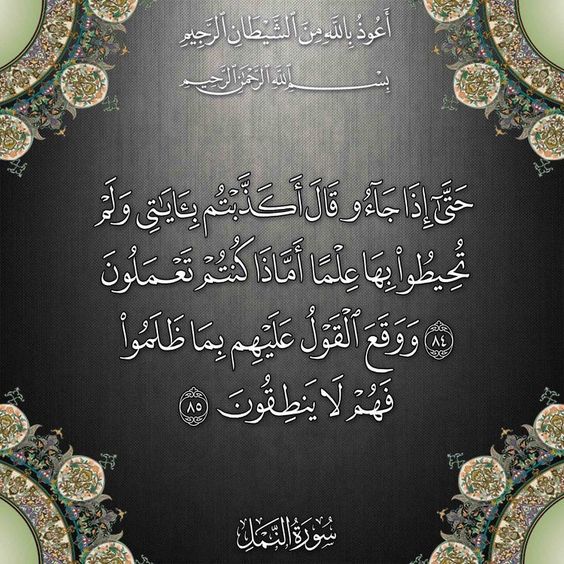 أَعُوذُ بِاللَّهِ مِنَ ٱلشَّيْطَانِ ٱلرَّجِيمِ
بِسْمِ ٱللَّهِ ٱلرَّحْمَٰنِ ٱلرَّحِيمِ
حَتَّىٰٓ إِذَا جَآءُو قَالَ أَكَذَّبْتُم بِـَٔايَٰتِى وَلَمْ
تُحِيطُوا۟ بِهَا عِلْمًا أَمَّاذَا كُنتُمْ تَعْمَلُونَ
٨٤ وَوَقَعَ ٱلْقَوْلُ عَلَيْهِم بِمَا ظَلَمُوا۟
فَهُمْ لَا يَنطِقُونَ ٨٥
سُورَةُ النَّمْلِ